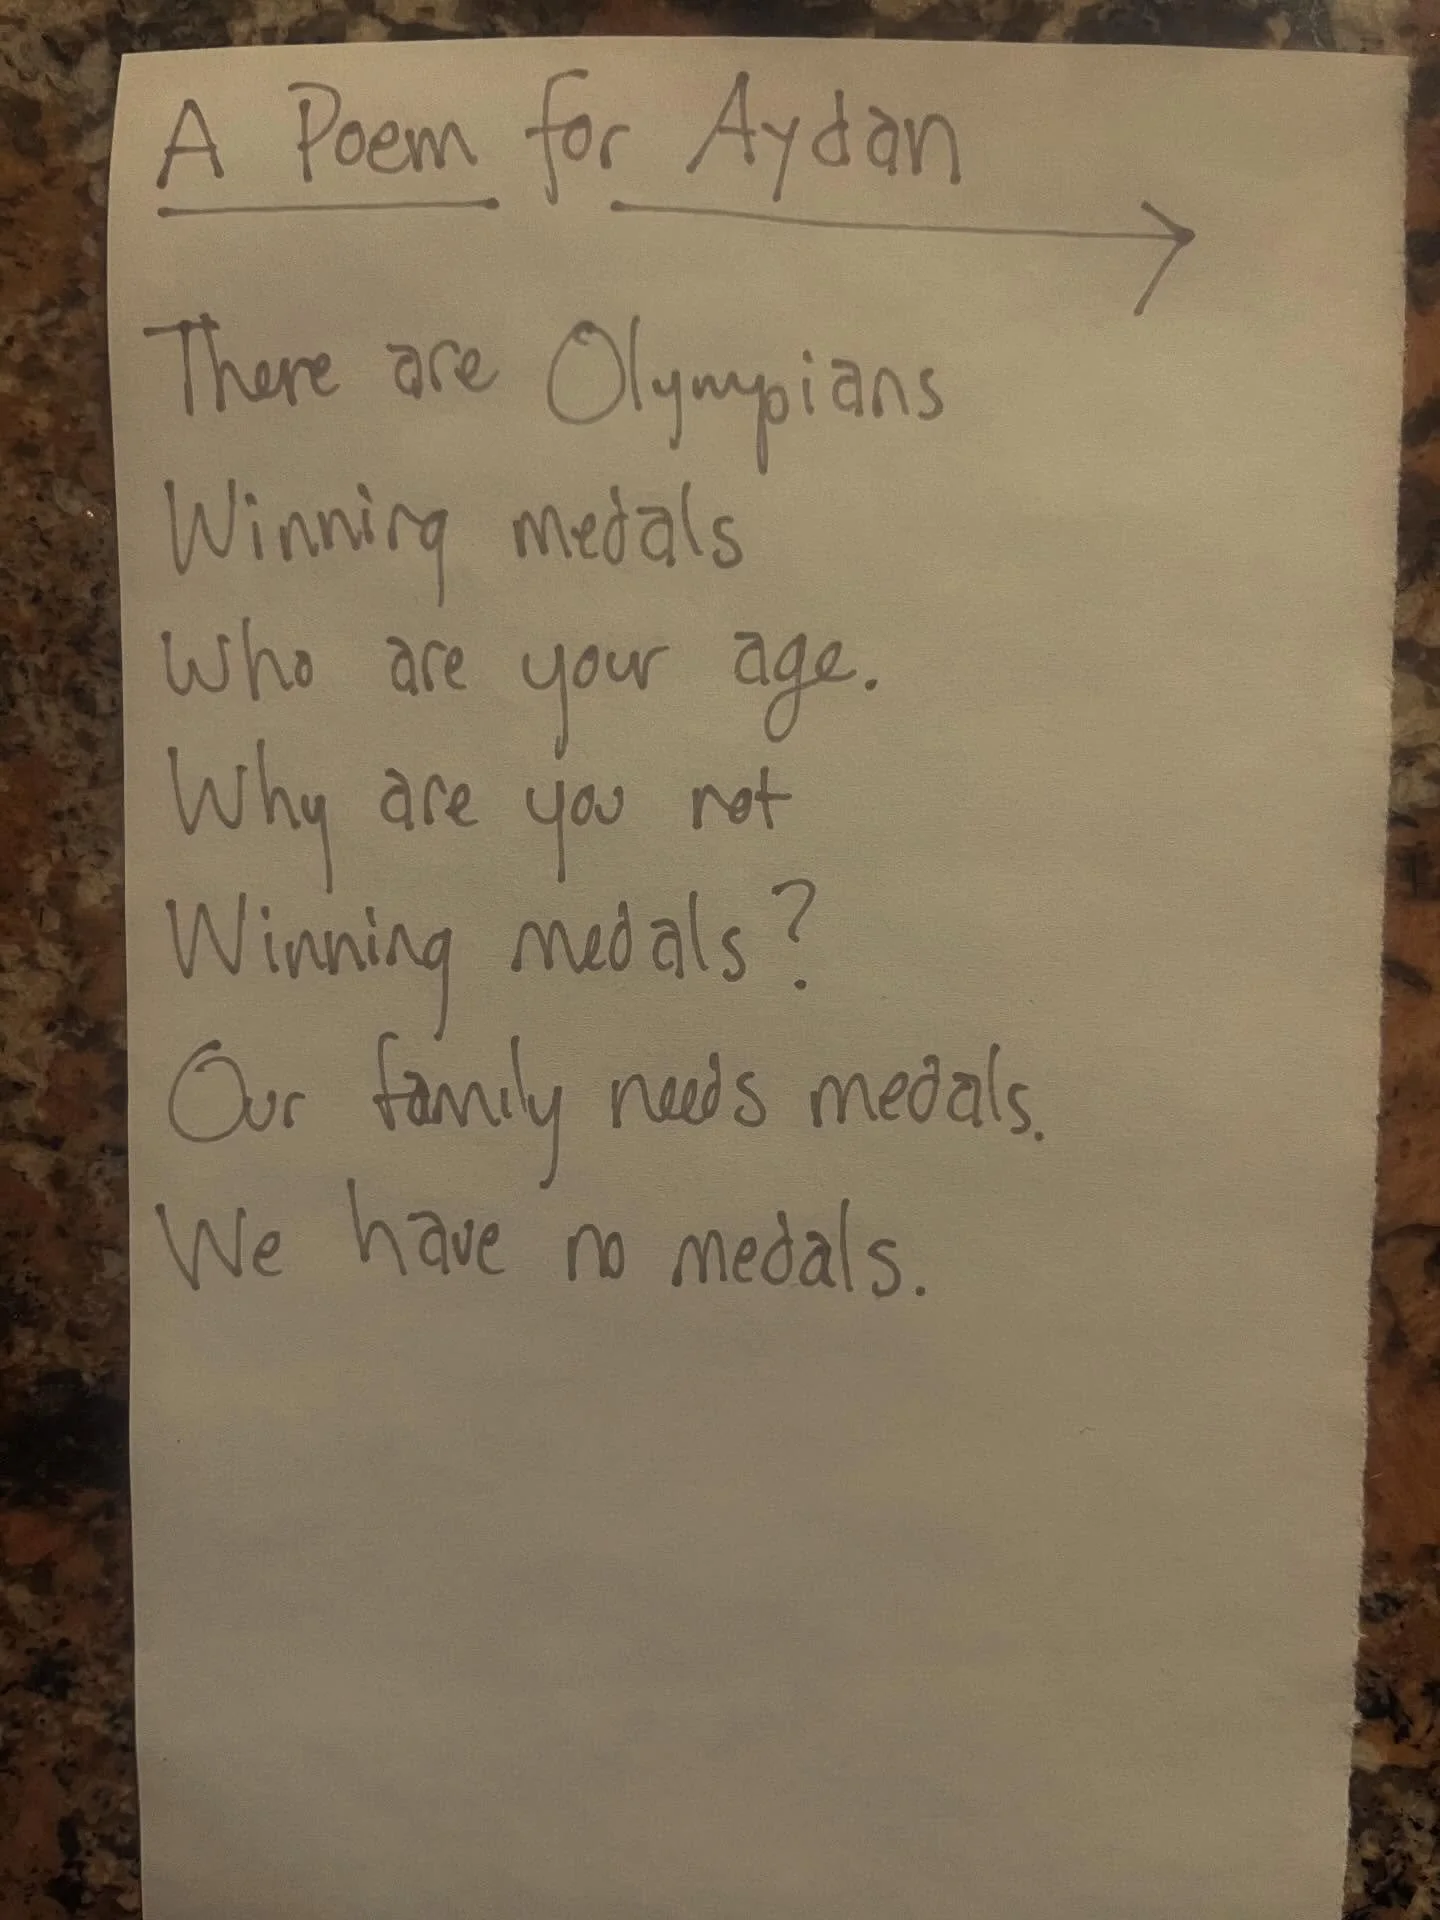 A Poem for Aydan
There are Olympians
Winning medals
Who are your age.
Why are you not
Winning medals?
Our family needs medals.
We have no medals.